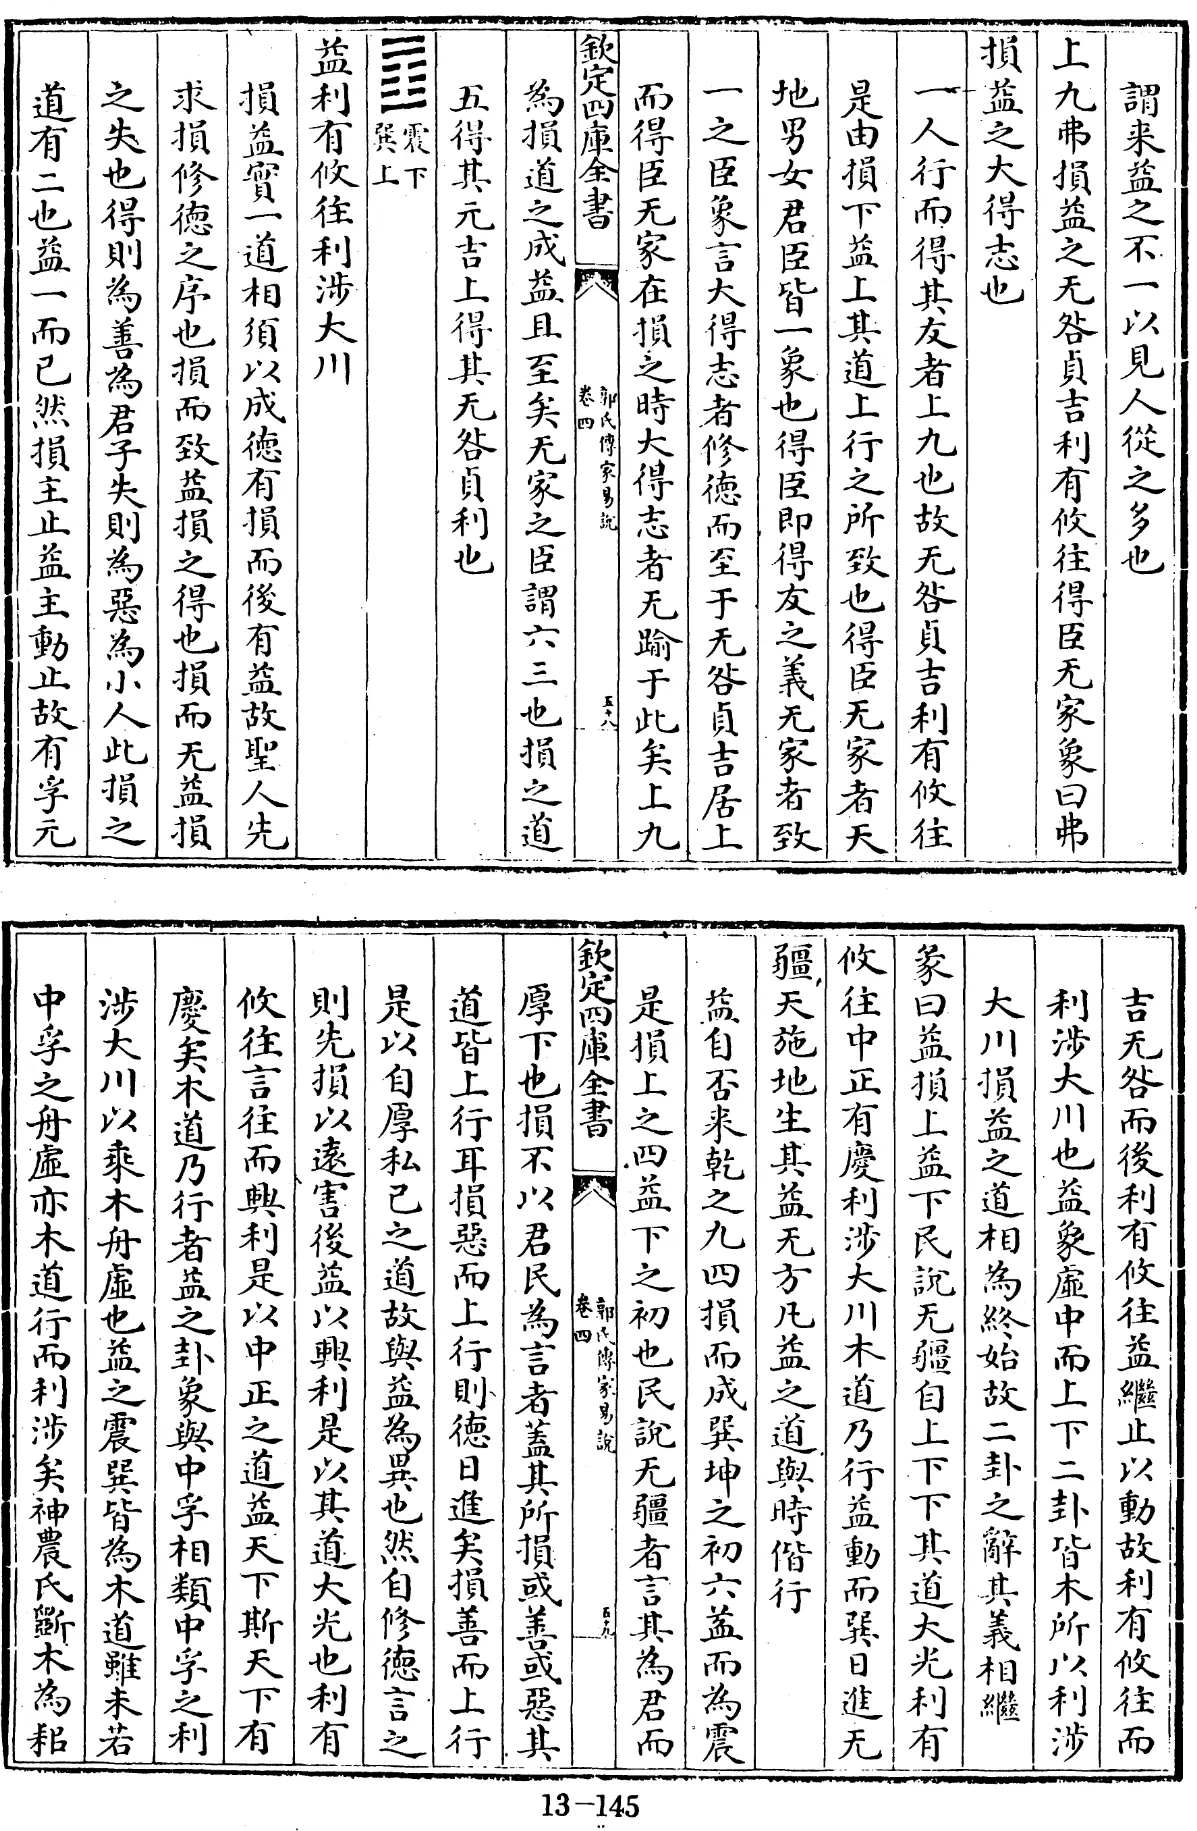 謂来益之不一以見人從之多也
上九弗損益之无咎貞吉利有攸往得臣无家象曰弗
損益之大得志也
一人行而得其友者上九也故无咎貞吉利有攸往
是由損下益上其道上行之所致也得臣无家者天
地男女君臣皆一象也得臣即得友之義无家者致
一之臣象言大得志者修德而至于无咎貞吉居上
而得臣无家在損之時大得志者无踰于此矣上九
欽定四庫全書
郭氏傳家易說
卷四
五十八
為損道之成益且至矣无家之臣謂六三也損之道
五得其元吉上得其无咎貞利也
震下
巽上
益利有攸往利涉大川
損益實一道相須以成德有損而後有益故聖人先
求損修德之序也損而致益損之得也損而无益損
之失也得則為善為君子失則為惡為小人此損之
道有二也益一而已然損主止益主動止故有孚元
吉无咎而後利有攸往益繼止以動故利有攸往而
利涉大川也益象虛中而上下二卦皆木所以利涉
大川損益之道相為終始故二卦之辭其義相繼
彖曰益損上益下民說无疆自上下下其道大光利有
攸往中正有慶利涉大川木道乃行益動而巽日進无
疆天施地生其益无方凡益之道與時偕行
益自否来乾之九四損而成巽坤之初六益而為震
是損上之四益下之初也民說无疆者言其為君而
欽定四庫全書
郭氏傳家易說
卷四
五十九
厚下也損不以君民為言者蓋其所損或善或惡其
道皆上行耳損惡而上行則德日進矣損善而上行
是以自厚私己之道故與益為異也然自修德言之
則先損以遠害後益以興利是以其道大光也利有
攸往言往而興利是以中正之道益天下斯天下有
慶矣木道乃行者益之卦象與中孚相類中孚之利
涉大川以乘木舟虛也益之震巽皆為木道雖未若
中孚之舟虛亦木道行而利涉矣神農氏斲木為耜
13-145